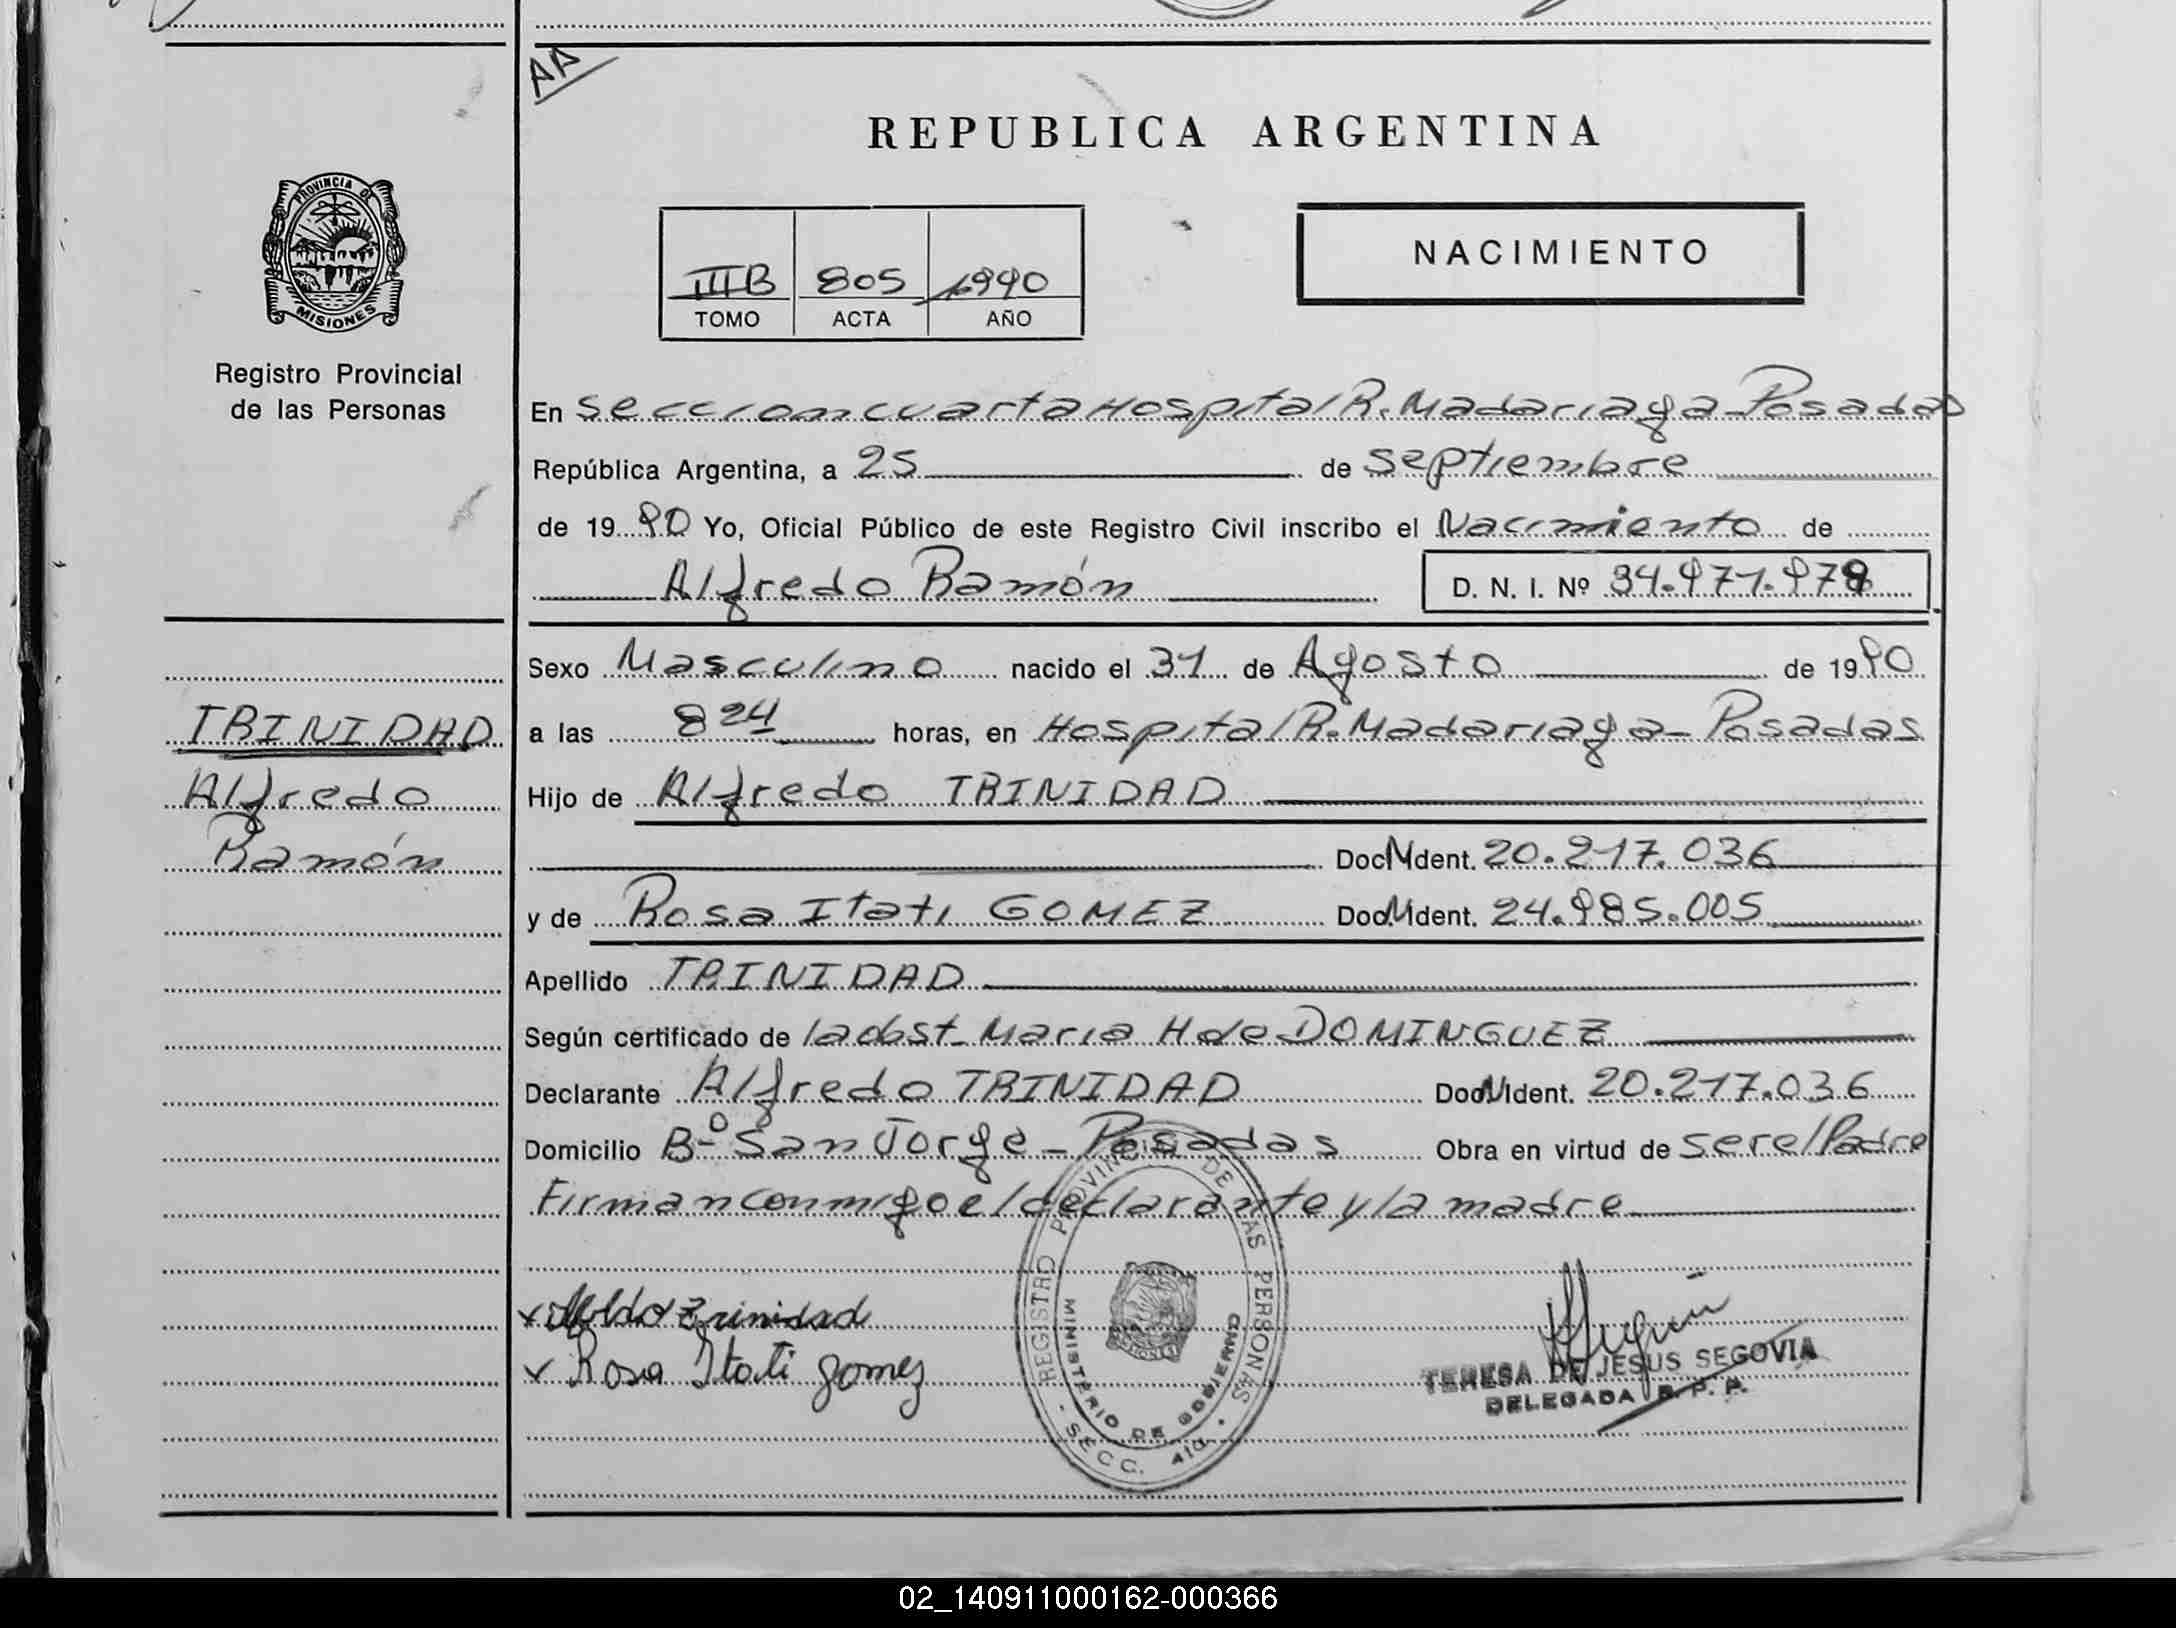 AA
REPUBLICA ARGENTINA
PROVINCIA DE
MISIONES
Registro Provincial
de las Personas
IIIB 805 1990
TOMO ACTA AÑO
NACIMIENTO
En seccion cuarta Hospital R. Madariaga - Posadas
República Argentina, a 25 de septiembre
de 1990 Yo, Oficial Público de este Registro Civil inscribo el Nacimiento de
Alfredo Ramón D. N. I. Nº 34.971.978
Sexo Masculino nacido el 31 de Agosto de 1990
a las 8 24 horas, en Hospital R. Madariaga - Posadas
Hijo de Alfredo TRINIDAD
Doc. Ident. 20.217.036
y de Rosa Itati GOMEZ Doc. Ident. 24.985.005
Apellido TRINIDAD
Según certificado de la obst. Maria H de DOMINGUEZ
Declarante Alfredo TRINIDAD Doc. Ident. 20.217.036
Domicilio Bº San Jorge - Posadas Obra en virtud de ser el Padre
Firman conmigo el declarante y la madre
TRINIDAD
Alfredo
Ramón
trinidad
Rosa Itati gomez
REGISTRO PROVINCIAL DE LAS PERSONAS
MINISTERIO DE GOBIERNO
- SECC. 4ta. -
TERESA DE JESUS SEGOVIA
DELEGADA R. P. P.
02_140911000162-000366